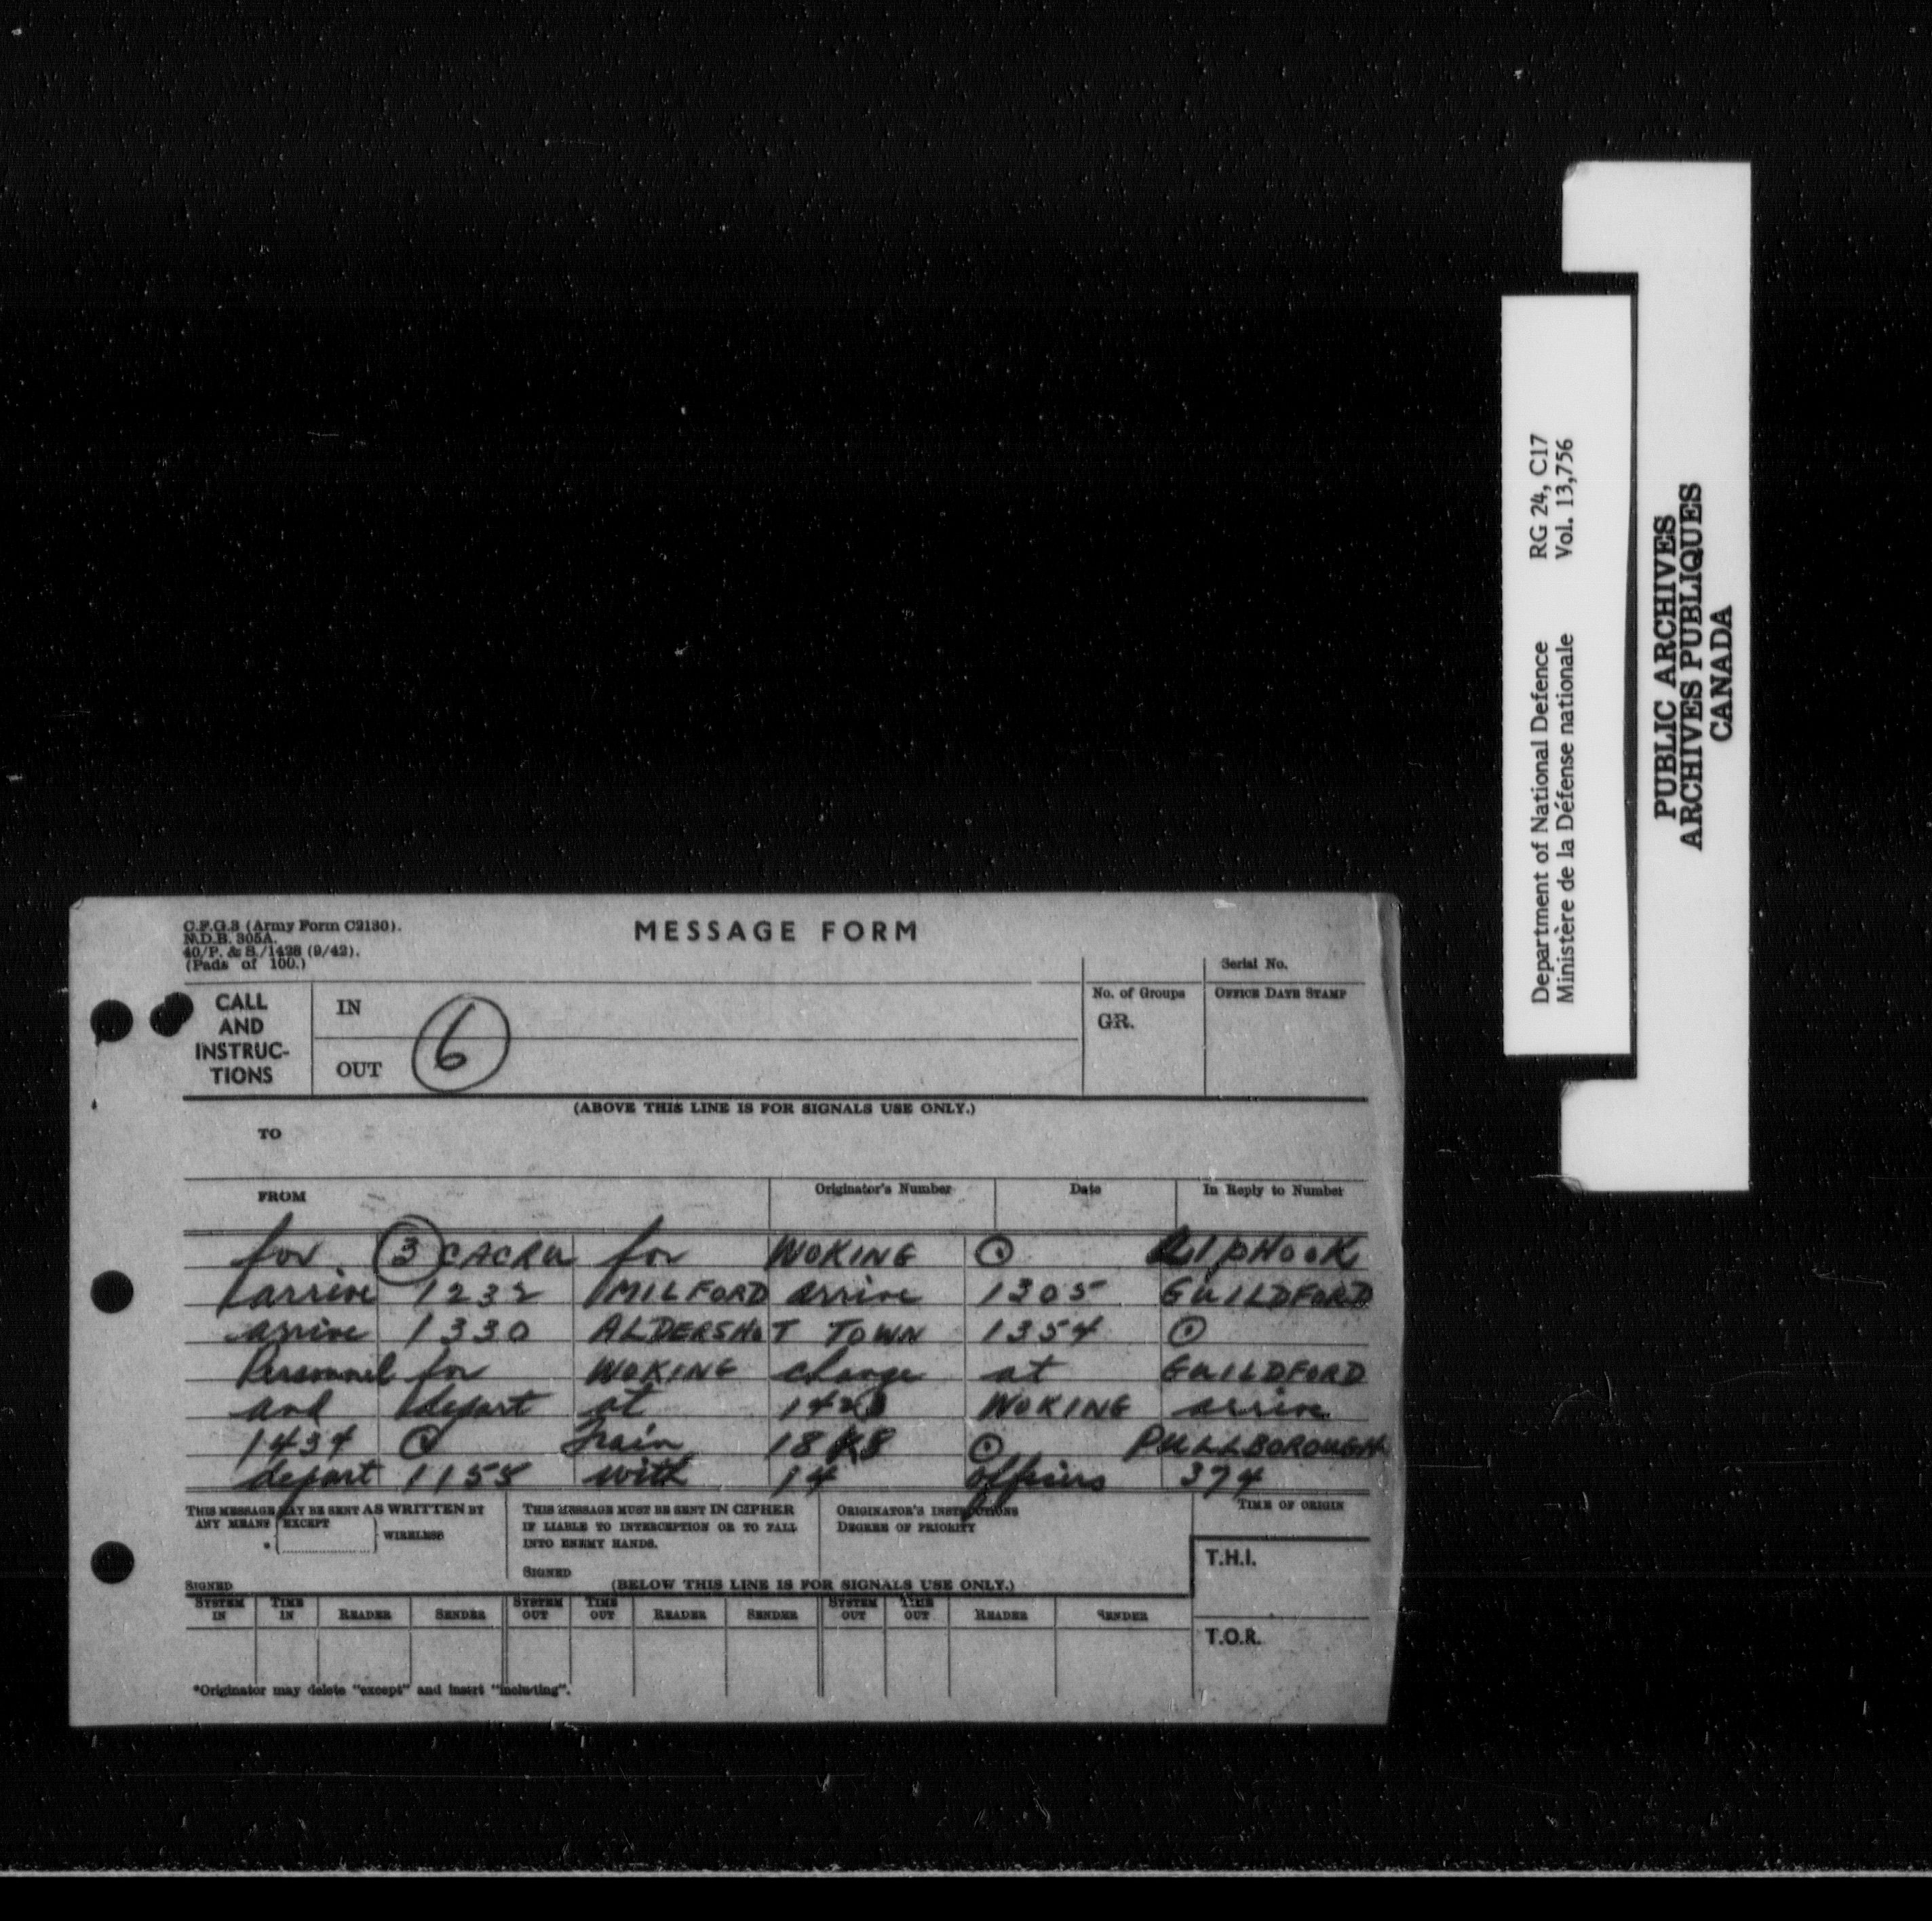 C.F.G.3 (Army Form C2130).
N.D.B. 305A.
40/P. & S./1428 (9/42).
(Pads of 100.)
MESSAGE FORM
Serial No.
CALL AND INSTRUC-TIONS
IN
OUT
6
No. of Groups
GR.
OFFICE DATE STAMP
(ABOVE THIS LINE IS FOR SIGNALS USE ONLY.)
TO
FROM
Originator's Number
Date
In Reply to Number
for 3 CACRU for WOKING ⊙ LIPHOOK
arrive 1232 MILFORD arrive 1305 GUILDFORD
arrive 1330 ALDERSHOT TOWN 1354 ⊙
Personnel for WOKING change at GUILDFORD
and depart at WOKING arrive
1434 ⊙ Train ⊙ PULLBOROUGH
depart 1155 with 14 officers 374
THIS MESSAGE MAY BE SENT AS WRITTEN BY
ANY MEANS EXCEPT
* WIRELESS
SIGNED
THIS MESSAGE MUST BE SENT IN CIPHER
IF LIABLE TO INTERCEPTION OR TO FALL
INTO ENEMY HANDS.
SIGNED
ORIGINATOR'S INSTRUCTIONS
DEGREE OF PRIORITY
TIME OF ORIGIN
T.H.I.
T.O.R.
(BELOW THIS LINE IS FOR SIGNALS USE ONLY.)
SYSTEM IN TIME IN READER SENDER SYSTEM OUT TIME OUT READER SENDER SYSTEM OUT TIME OUT READER SENDER
*Originator may delete "except" and insert "including".
Department of National Defence RG 24, C17
Ministère de la Défense nationale Vol. 13,756
PUBLIC ARCHIVES
ARCHIVES PUBLIQUES
CANADA